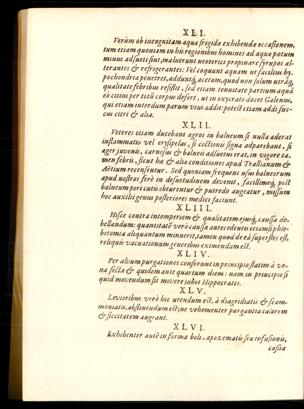 XLI.
Verùm ob incognitam aquæ frigidæ exhibendæ occasionem,
tum etiam quoniam in his regionibus homines ad aquæ potum
minus adsueti sint, maluerunt neoterici propinare syrupos al-
terantes & refrigerantes: Vel coquunt aquam ut facilius hy-
pochondria penetret, addunt&#39;q; acetum, quod non solum utráq;
qualitate febribus resistit, sed etiam tenuitate partium aquâ
eò citius per totū corpus defert, ut in oxycrato docet Galenus,
qui etiam interdum parum vini addit: potest etiam addi suc-
cus citri & alia.
XLII.
Veteres etiam ducebant ægros in balneum si nulla aderat
inflammatio vel erysipelas, si coctionis signa adparebant, si
æger juvenis, carnosus & balneis adsuetus erat, in vigore ta-
men febris, sicut hæ & aliæ conditiones apud Trallianum &
Aëtium recensentur. Sed quoniam frequens usus balneorum
apud nostros ferè in desuetudinem devenit, facillimeq́; post
balneum pori cutis obturentur & putredo augeatur, missum
hoc auxilij genus posteriores medici faciunt.
XLIII.
Hisce contra intemperiem & qualitatem ejusq́; caussā de-
bellandum: quantitatē verò caussæ antecedentis etiamsi phle-
botomia aliquantum imminerit, tamen quod de eâ superstes est,
reliquis vacuationum generibus eximendum est.
XLIV.
Per alvum purgationes conferunt in principio statim à ve-
na secta & quidem ante quartum diem: nam in principio si
quid movendum sit movere jubet Hippocrates.
XLV.
Levioribus verò hîc utendum est, à diagridiatis & scam-
moniatis, abstinendum est, ne vehementer purgantia calorem
& siccitatem augeant.
XLVI.
Exhibenter autē in forma boli, apozematis seu infusionis,
cassia